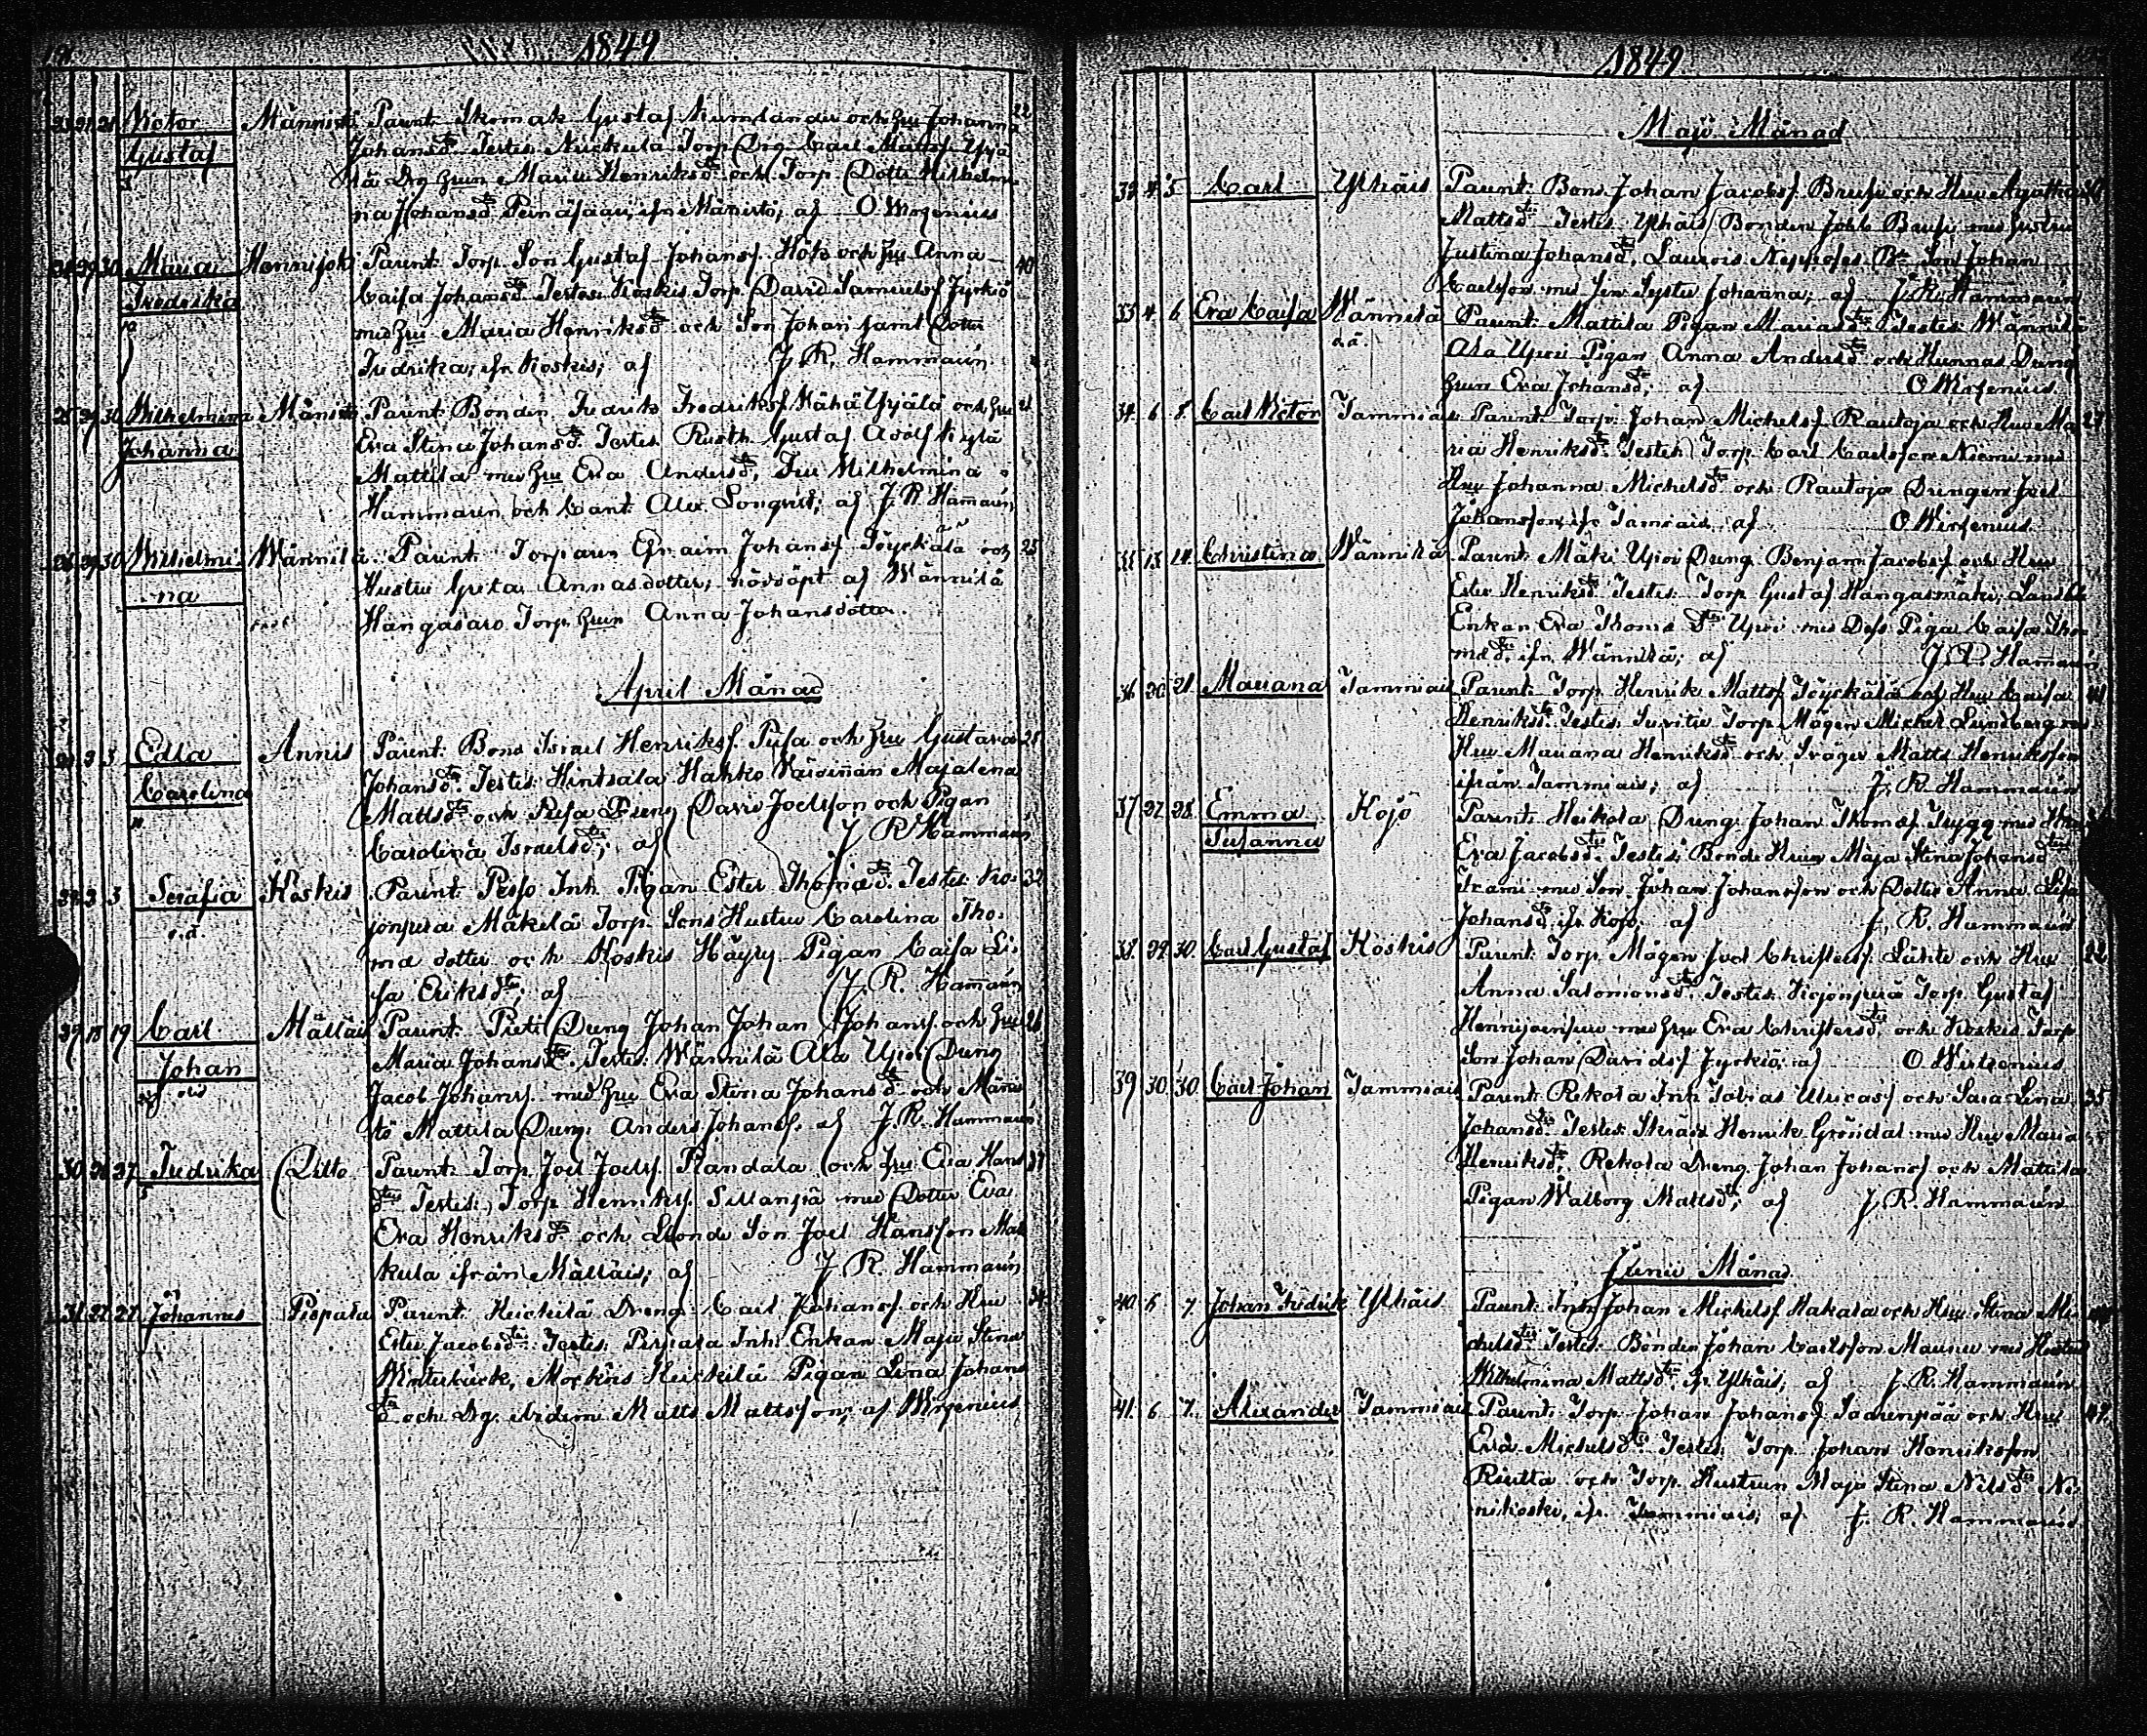 1849
23 29 21 Victor Männistö Parent: Skomak Gustaf Kumlander och Hru Johanna 22
Gustaf Johansdtr Testes: Torp Drg Carl Mattss
Drg Hrun Maria Henriksdtr och Torp Dottr Wilhelmi
na Johansdtr ifr Männistö; af O Wirzenius
29 30 Maria Hennijoki Parent: Torp. Son Gustaf Johanss. Hök och Hru Anna 40
Fredrika Caisa Johansdtr Testes: Koskis Torp. David Samuelss Jyrkiö
med Hru Maria Henriksdtr och Son Johan samt Dotter
Fredrika, ifr Koskis; af J. R. Hammarén
25 29 30 Wilhelmina Männistö Parent: Bonden Fredrik Fredrikss Wähä Yijälä och Hru
Johanna Eva Stina Johansdtr Testes: Rusth. Gustaf Adolf
Mattila med Hru Eva Andersdtr, Fru Wilhelmina
Hammarén och Cant. Alex. Lonqvist; af J. R. Hamarén
26 29 30 Wilhelmi- Wännilä Parent: Torparen Efraim Johanss Töyckälä och 25
na Hustru Greta Annasdotter, nöddöpt af Wännilä
Hangasaro Torp. Hrun Anna Johansdotter.
April Månad
3 Edla Annis Parent: Bond Israel Henrikss. Pusa och Hru Gustava 28
Carolina Johansdtr Testes: Hintsala Hakko Wärdinnan Majalena
Mattsdtr och Pusa Dreng David Joelsson och Pigan
Carolina Israelsdtr; af J. R. Hammarén
3 Serafia Koskis Parent: Inh. Pigan Ester Thomædtr. Testes: Ko- 32
o.ä. jonperä Mäkelä Torp. Sons Hustru Carolina Tho-
mæ dotter och Koskis Häyry Pigan Caisa Li-
sa Eriksdtr; af J. R. Hamarén
18 19 Carl Mältäis Parent: Dreng Johan Johan Johanss. och Hru 26
Johan Maria Johansdtr. Testes: Wännilä Ala Upoi Dreng
Jacob Johanss. med Hru Eva Stina Johansdtr och Männis
tö Mattila Dreng Anders Johanss. af J. R. Hammarén
30 26 27 Fredrika Ditto Parent: Torp. Joel Joelss. Randala och Hru Eva Hans
dtr Testes: Torp Henrikss. Sillanpä med Dotter Eva
Eva Henriksdtr och Bonde Son Joel Hansson
kula ifrån Mältäis; af J. R. Hammarén
31 27 27 Johannes Pispala Parent: Heickilä Dreng Carl Johanss. och Hru
Ester Jacobsdtr Testes: Pispala Inh: Enkan Maja Stina
Heickilä Pigan Lina Johans
dtr och Drg Matts Mattsson; af Wirzenius
1849
Maji Månad
32 4 5 Carl Ylhäis Parent: Bond. Johan Jacobss. Brusi och Hru Agatha 30
Mattsdtr Testes: Ylhäis Bonden Job Brusi med Hustru
Justina Johansdtr, Laurois Br Son Johan
Carlsson med Syster Johanna; af J. R. Hammarén
33 4 6 Eva Caisa Wännilä Parent: Mattila Pigan Mariasdtr Testes: Wännilä
o.ä. Ala Upoi Pigan Anna Andersdtr och Dreng
Hrun Eva Johansdtr; af O Wirzenius
34 6 8 Carl Victor Tammiais Parent: Torp. Johan Michelss Rautoja och Hru Ma 27
ria Henriksdtr Testes: Torp. Carl Carlsson Niemi med
Hru Johanna Michelsdtr och Rautoja Drengen Joel
Johansson, ifr Tamiais, af O Wirzenius
35 13 14 Christina Wännilä Parent: Mäki Upoi Dreng Benjam Jacobss och Hru
Ester Henriksdtr Testes: Torp. Gustaf Hangasmäki,
Enkan Eva Thomædtr Upoi med Dess Piga Caisa Tho
mædtr, ifrn Wännilä; af J. R. Hamarén
36 20 21 Mariana Tammiais Parent: Torp. Henrik Mattss Töyckälä och Hru Caisa 41
Henriksdtr Testes: Torp. Mågen Michel Lundberg med
Hru Mariana Henriksdtr och Svåger Matts Henriksson
ifrån Tammiais; af J. R. Hammarén
37 27 28 Emma Kojo Parent: Heikola Dreng Johan Thomss Trygg med Hru
Susanna Eva Jacobsdtr Testes: Bonde Hrun Maja Stina Johansdtr
med Son Johan Johansson och Dotter Anna Lisa
Johansdtr, ifr Kojo; af J. R. Hammarén
38 29 30 Carl Gustaf Koskis Parent: Torp. Mågen Joel Christerss. Lähte och Hru 22
Anna Salomonsdtr Testes: Kojonperä Torp. Gustaf
med Hru Eva Christersdtr, och Koskis Torp.
Son Johan Davidss Jyrkiö; af O Wirzenius
39 30 30 Carl Johan Tammiais Parent: Rekola Inh Tobias Ulricass och Sara Lena 35
Johansdtr Testes: Skräd. Henrik Gröndal med Hru Maria
Henriksdtr, Rekola Dreng Johan Johanss och Mattila
Pigan Walborg Mattsdtr, af J. R. Hammarén
Junii Månad
40 6 7 Johan Fredrik Ylhäis Parent: Inh. Johan Michelss Hakala och Hru Stina Mi-
chelsdtr Testes: Bonden Johan Carlsson Mauriu med Hustru
Wilhelmina Mattsdtr, ifr Ylhäis; af J. R. Hammarén
41 6 7 Alexander Tammiais Parent: Torp. Johan Johanss Saarenpää och Hru 42
Eva Michelsdtr Testes: Torp. Johan Henriksson
och Torp. Hustrun Maja Stina Nilsdtr Ni-
nikoski, ifr. Tammiais; af J. R. Hammarén